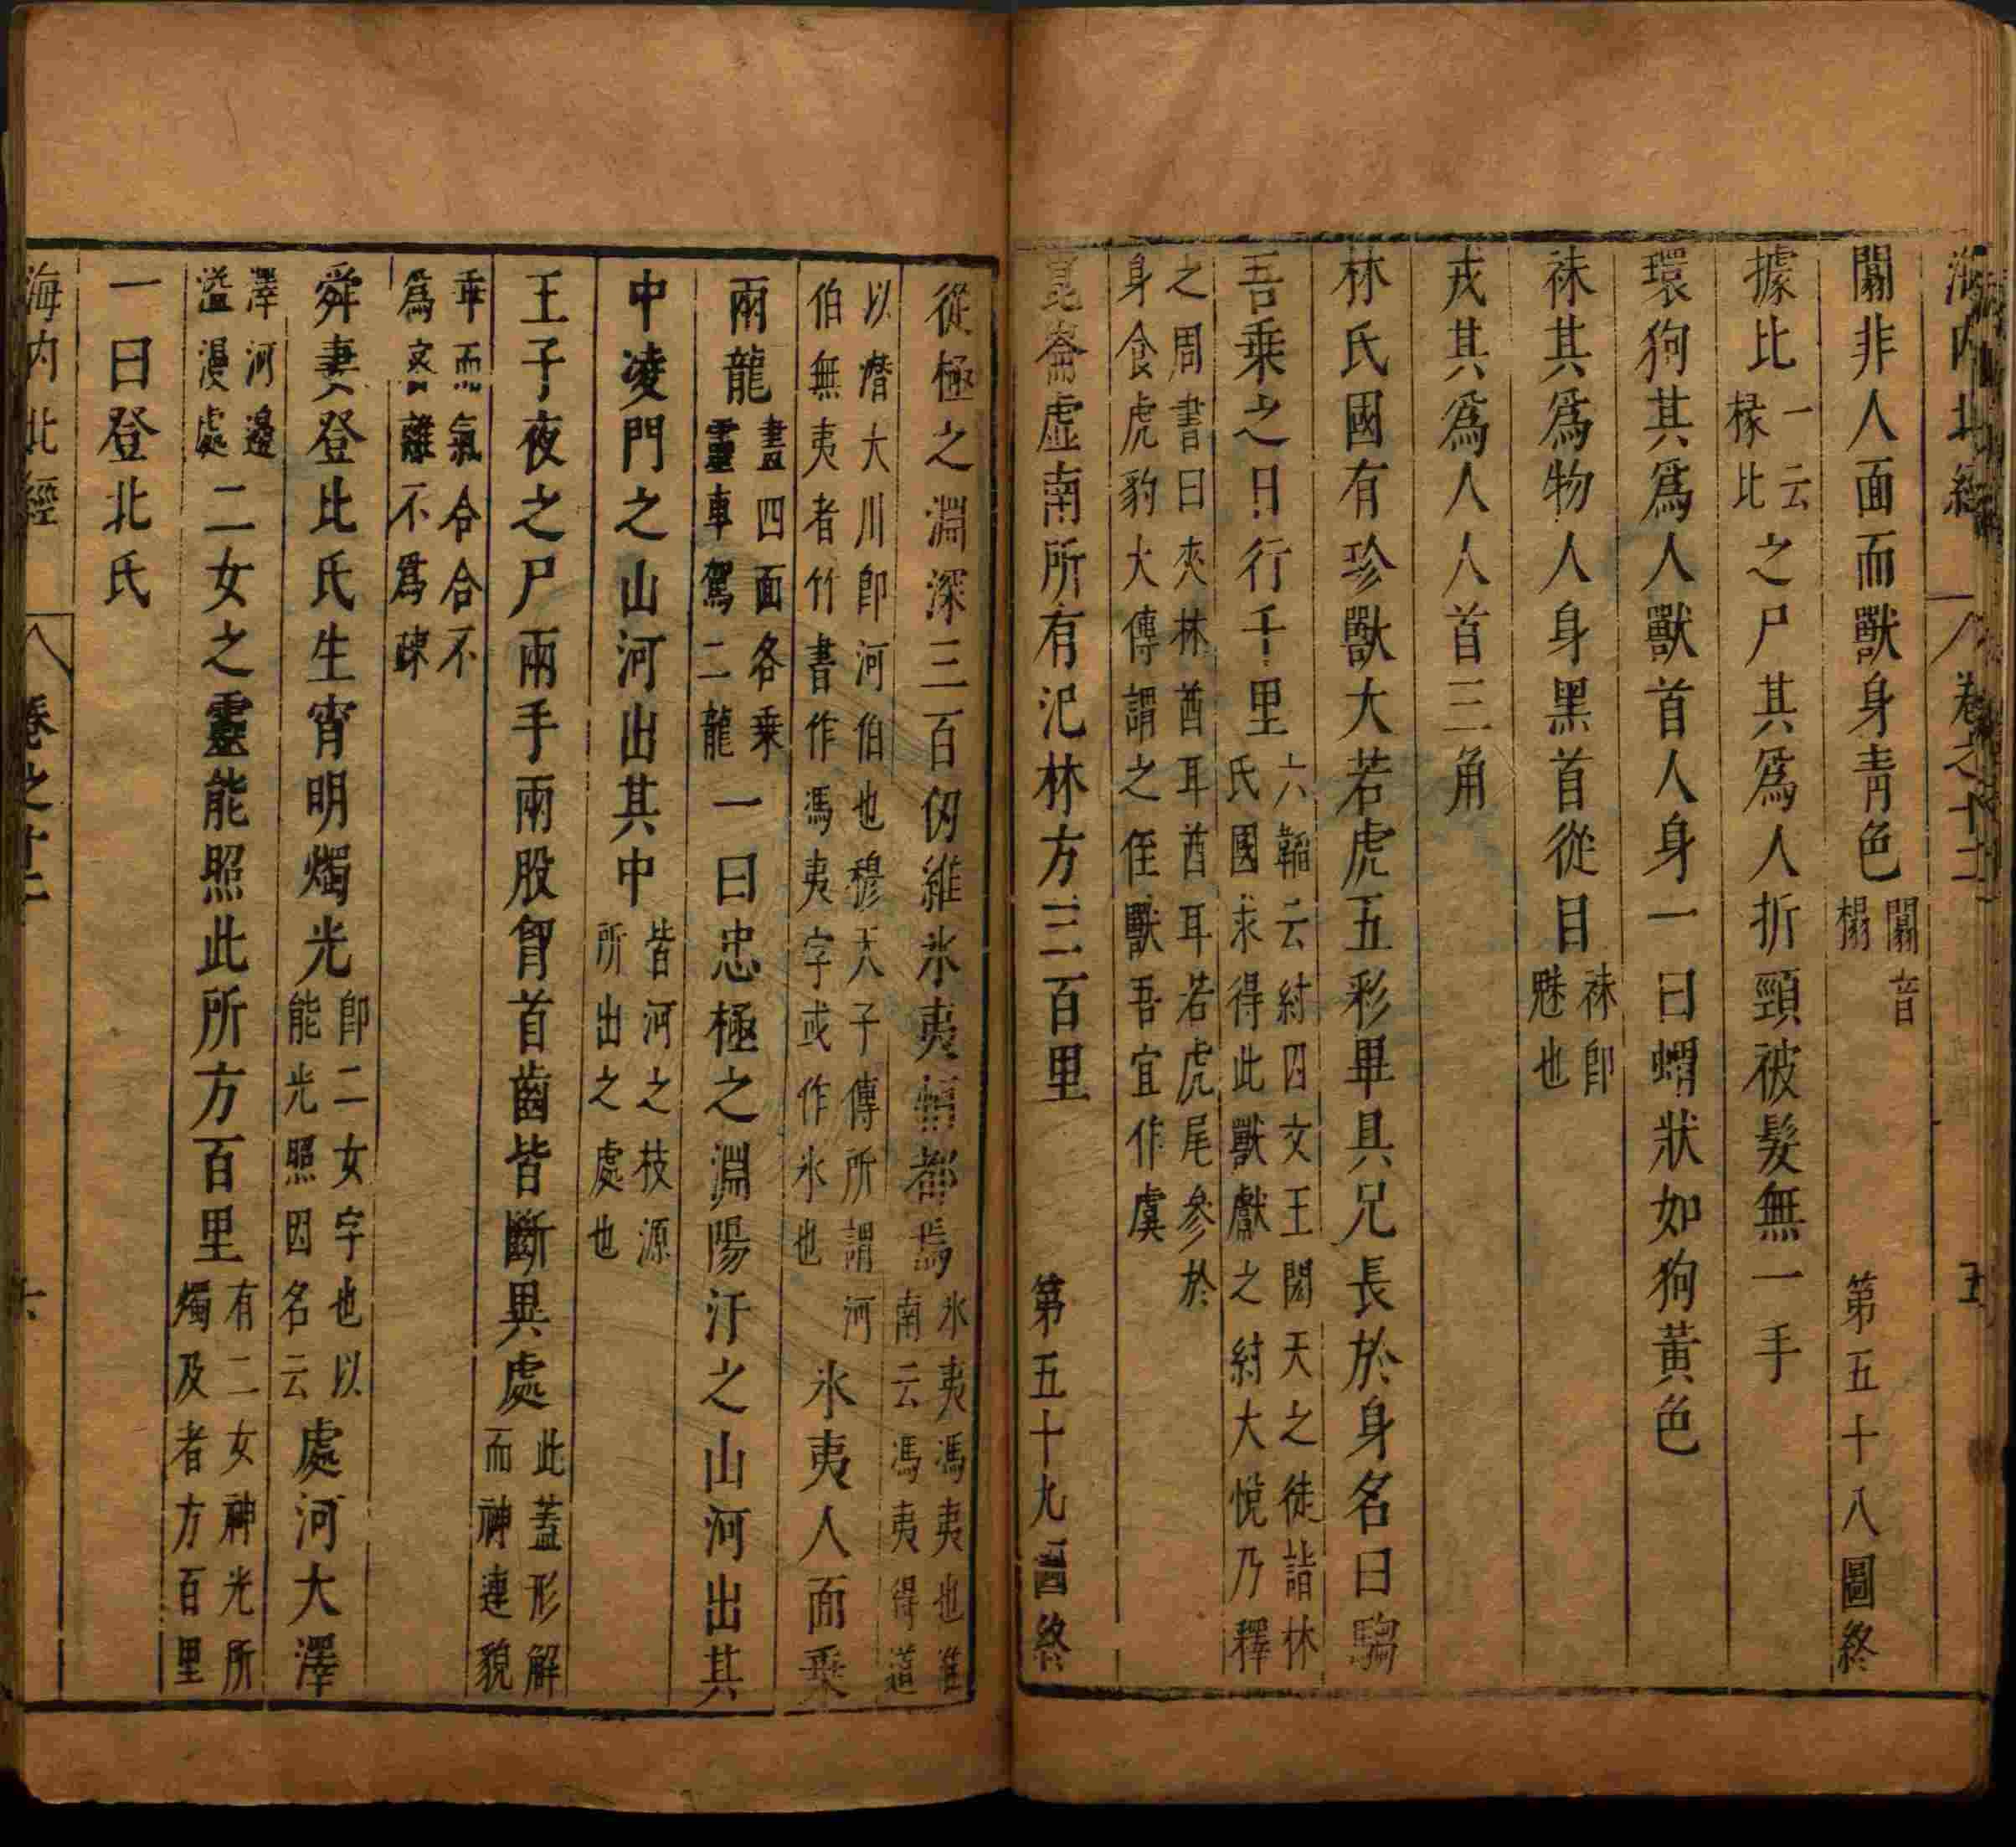 海內北經 卷之十二 五
闒非人面而獸身青色闒音榻 第五十八圖終
據比一云掾比之尸其爲人折頸被髮無一手
環狗其爲人獸首人身一曰蝟狀如狗黃色
袜其爲物人身黑首從目袜卽魅也
戎其爲人人首三角
林氏國有珍獸大若虎五彩畢具尾長於身名曰騶
吾乗之日行千里六韜云紂囚文王閎夭之徒詣林氏國求得此獸獻之紂大悅乃釋
之周書曰夾林酋耳酋耳若虎尾參於身食虎豹大傳謂之侄獸吾宜作虞
昆崙虛南所有氾林方三百里 第五十九圖終
從極之淵深三百仞維氷夷恒都焉氷夷馮夷也淮南云馮夷得道
以潛大川卽河伯也穆天子傳所謂河伯無夷者竹書作馮夷字或作氷也氷夷人面乗
兩龍畫四面各乗靈車駕二龍一曰忠極之淵陽汙之山河出其
中凌門之山河出其中皆河之枝源所出之處也
王子夜之尸兩手兩股胷首齒皆斷異處此蓋形解而神連貌
乖而氣合合不爲密離不爲疎
舜妻登比氏生宵明燭光卽二女字也以能光照因名云處河大澤
澤河邊溢漫處二女之靈能照此所方百里有二女神光所燭及者方百里
一曰登北氏
海內北經 卷之十二 六